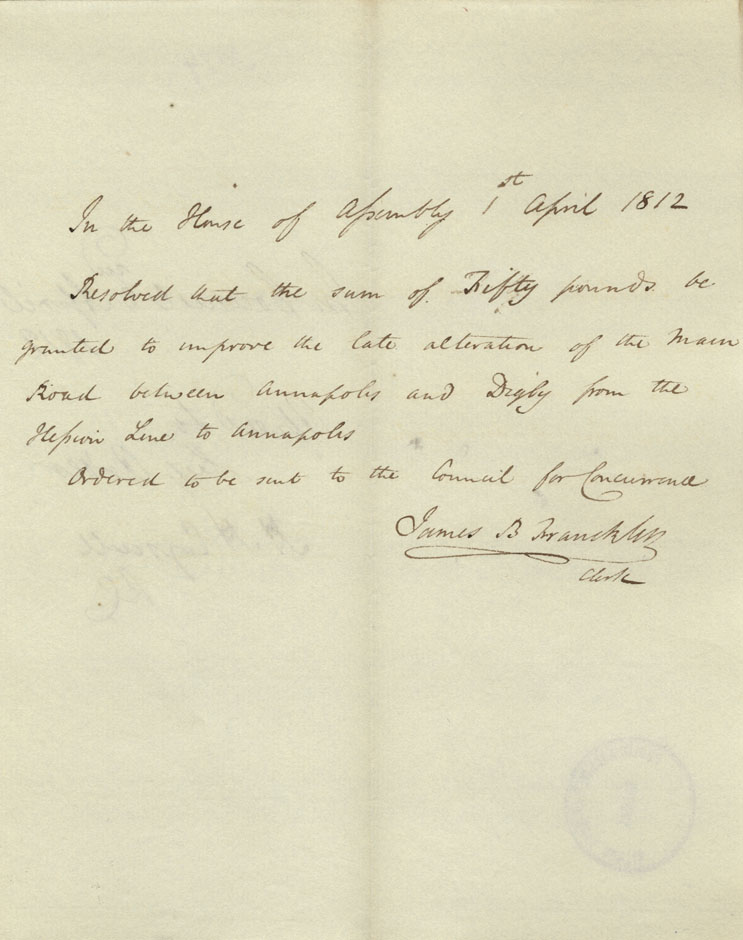 In the House of Assembly 1st April 1812
Resolved that the sum of Fifty pounds be
granted to improve the late alteration of the Main
Road between Annapolis and Digby from the
Hessian Line to Annapolis
Ordered to be sent to the Council for Concurrence
James B Francklin
Clerk